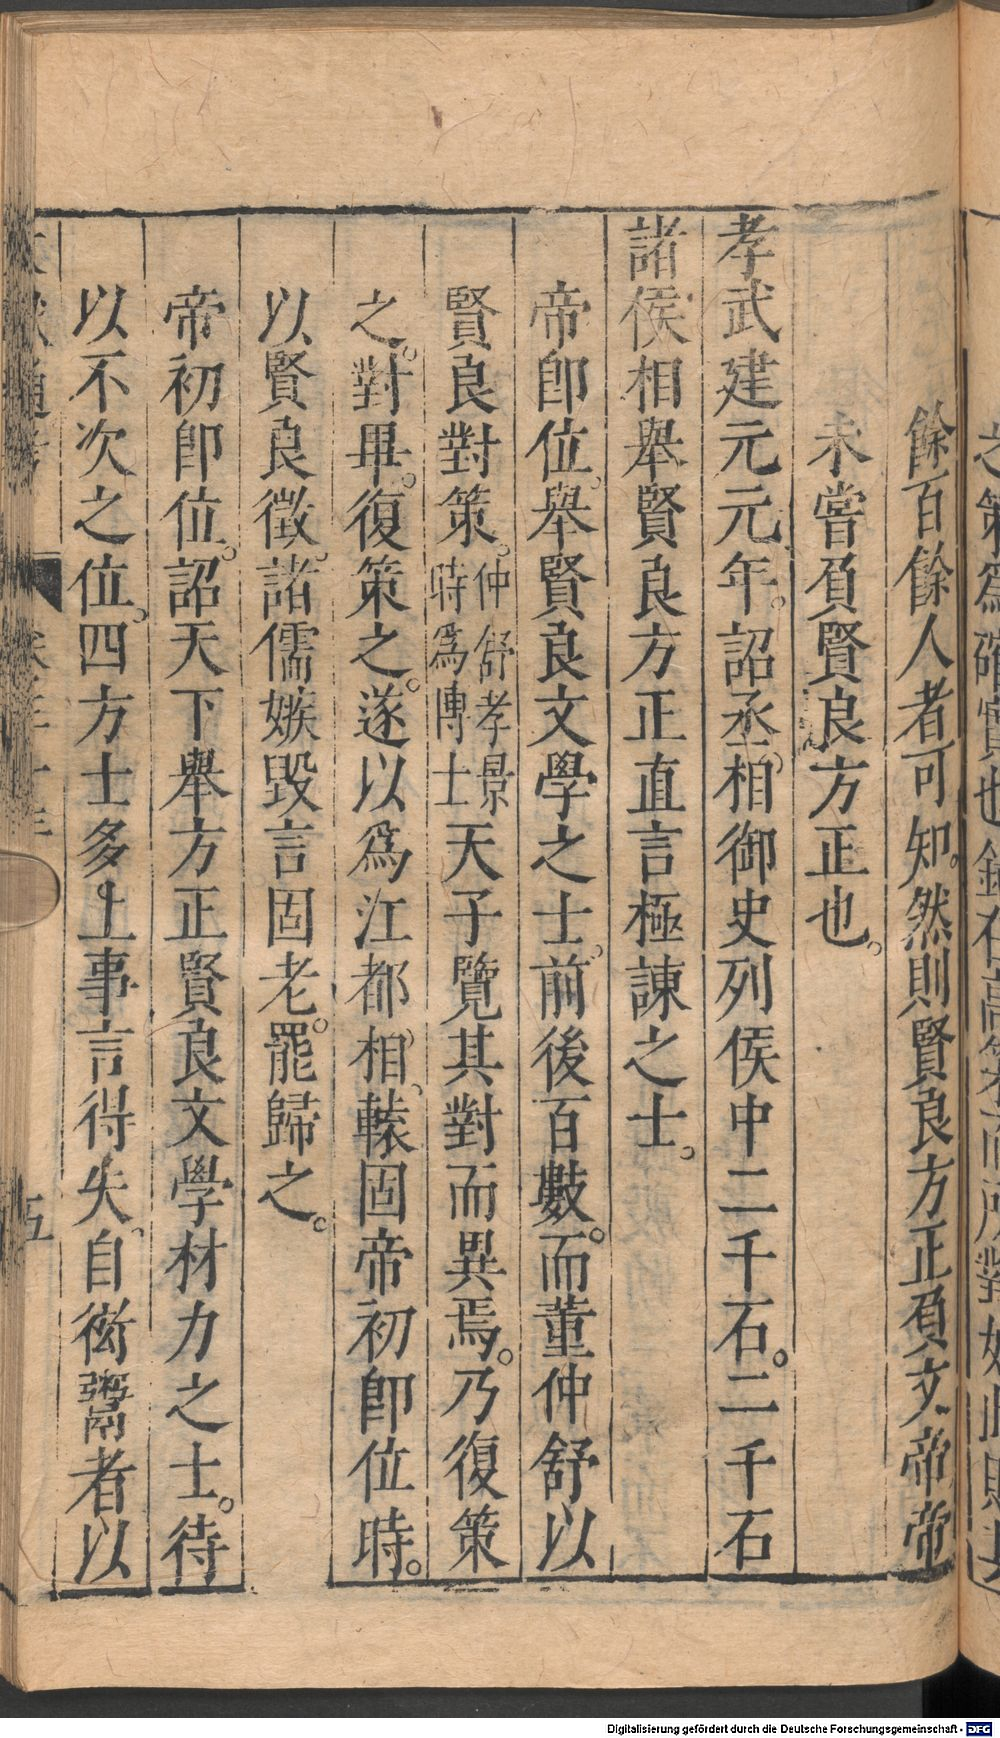 餘百餘人者可知。然則賢良方正負文帝帝
未嘗負賢良方正也。
孝武建元元年。詔丞相御史列侯中二千石。二千石
諸侯相舉賢良方正直言極諫之士。
帝卽位。舉賢良文學之士。前後百數。而董仲舒以
賢良對策。仲舒孝景時爲博士天子覽其對而異焉。乃復策
之。對畢。復策之。遂以爲江都相。轅固帝初卽位時。
以賢良徵。諸儒嫉毀言固老。罷歸之。
帝初卽位。詔天下舉方正賢良文學材力之士。待
以不次之位。四方士多上事言得失。自衒鬻者以
五
Digitalisierung gefördert durch die Deutsche Forschungsgemeinschaft - DFG